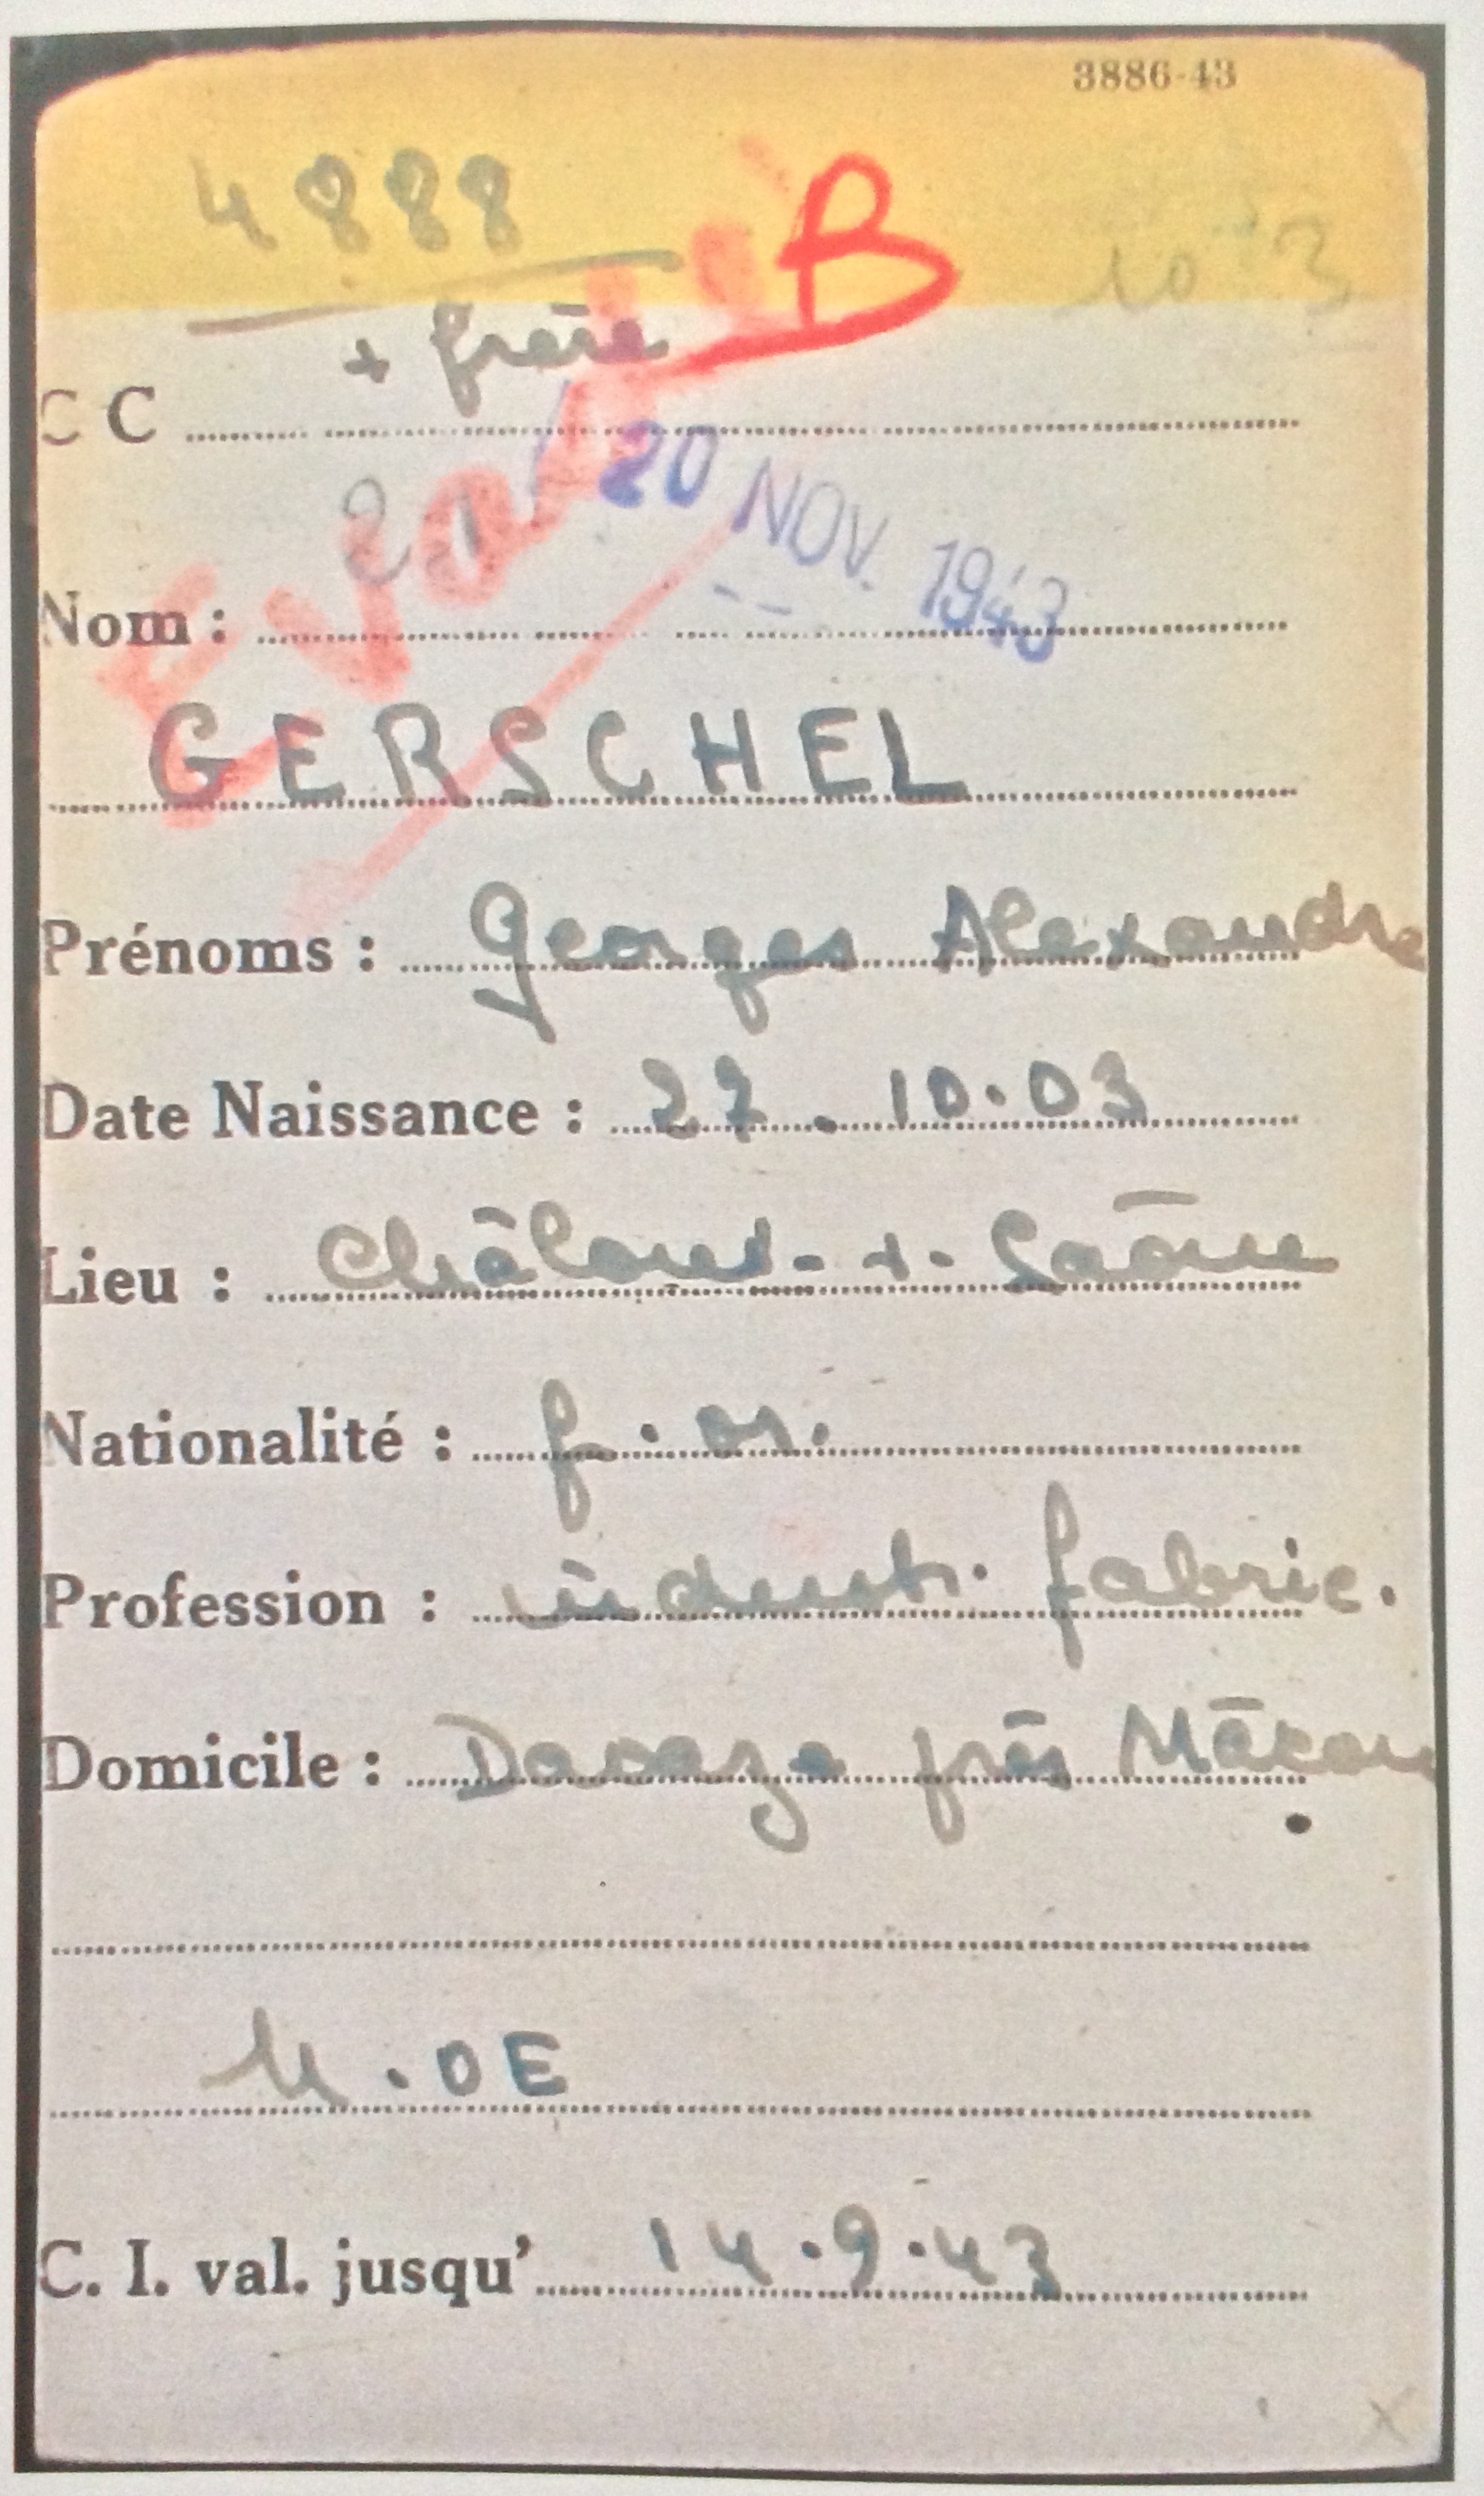 3886-43
4888
B
10 3
+ frère
C C
20 NOV. 1943
Evadé
Nom :
GERSCHEL
Prénoms : Georges Alexandre
Date Naissance : 27. 10.03
Lieu : Châlons-s-Saône
Nationalité : f. or.
Profession : indust. fabric.
Domicile : Davaye près Mâcon
M.DE
C. I. val. jusqu' 14.9.43